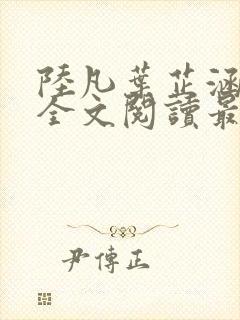 陸凡葉芷涵
全文閱讀最
尹傳正